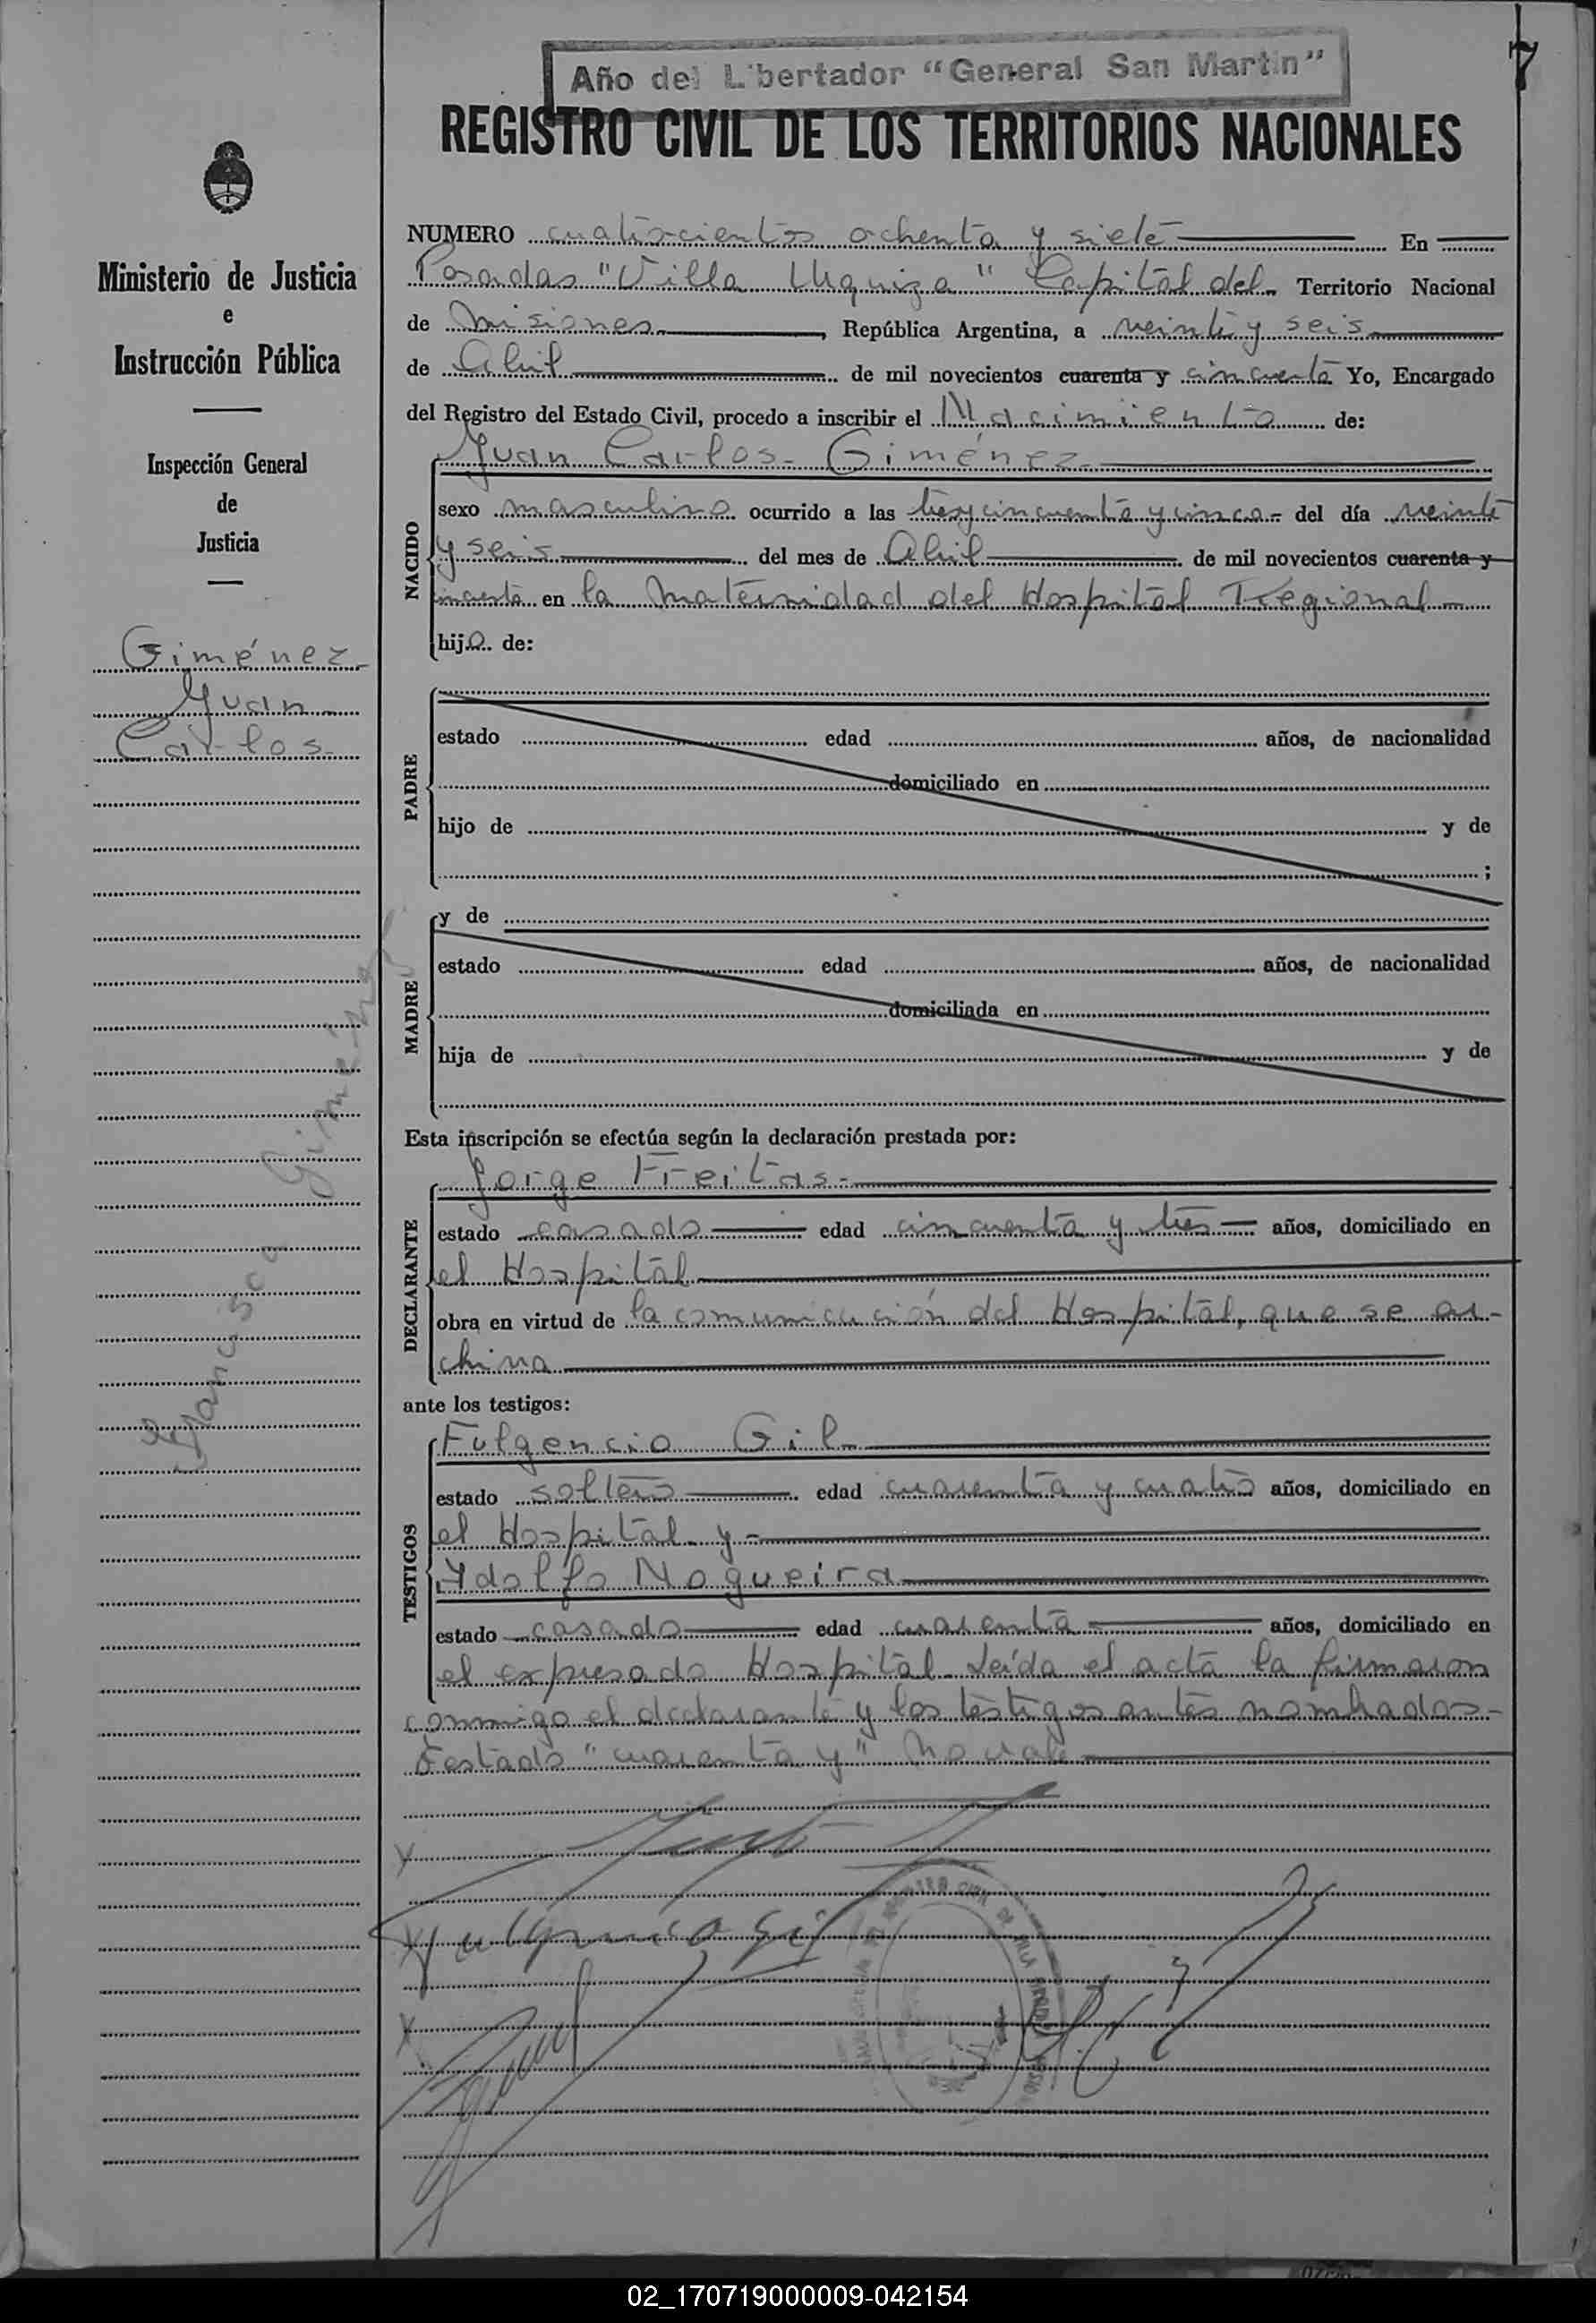 Año del Libertador "General San Martin"
7
REGISTRO CIVIL DE LOS TERRITORIOS NACIONALES
Ministerio de Justicia
e
Instrucción Pública
Inspección General
de
Justicia
Giménez
Juan
Carlos
Francisca Giménez
NUMERO cuatrocientos ochenta y siete En
Posadas "Villa Urquiza" Capital del Territorio Nacional
de Misiones, República Argentina, a veinte y seis
de Abril de mil novecientos cuarenta y cincuenta Yo, Encargado
del Registro del Estado Civil, procedo a inscribir el Nacimiento de:
Juan Carlos Giménez
NACIDO
sexo masculino ocurrido a las tres y cincuenta y cinco del día veinte
y seis del mes de Abril de mil novecientos cuarenta y
cincuenta en la Maternidad del Hospital Regional
hijo de:
PADRE
estado edad años, de nacionalidad
domiciliado en
hijo de y de
;
MADRE
y de
estado edad años, de nacionalidad
domiciliada en
hija de y de
Esta inscripción se efectúa según la declaración prestada por:
Jorge Freitas
DECLARANTE
estado casado edad cincuenta y tres años, domiciliado en
el Hospital
obra en virtud de la comunicación del Hospital, que se ar-
chiva
ante los testigos:
Fulgencio Gil
TESTIGOS
estado soltero edad cuarenta y cuatro años, domiciliado en
el Hospital y
Adolfo Nogueira
estado casado edad cuarenta años, domiciliado en
el expresado Hospital. Leída el acta la firmaron
conmigo el declarante y los testigos antes nombrados
Testado "cuarenta y" No vale
Fulgencio Gil
02_170719000009-042154